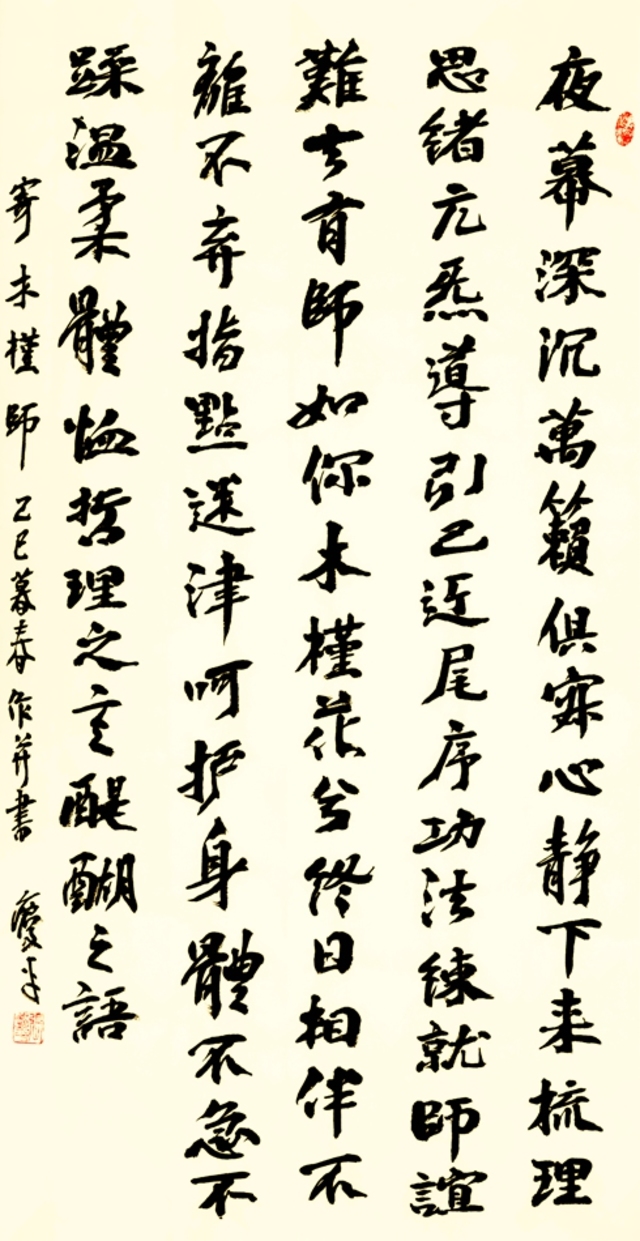 夜幕深沉萬籟俱寂心静下来梳理
思緒元炁導引已近尾序功法練就師誼
難去有師如你木槿花兮終日相伴不
離不弃指點迷津呵护身體不急不
躁温柔體恤哲理之言醍醐之語
寄木槿師 乙巳暮春作并書